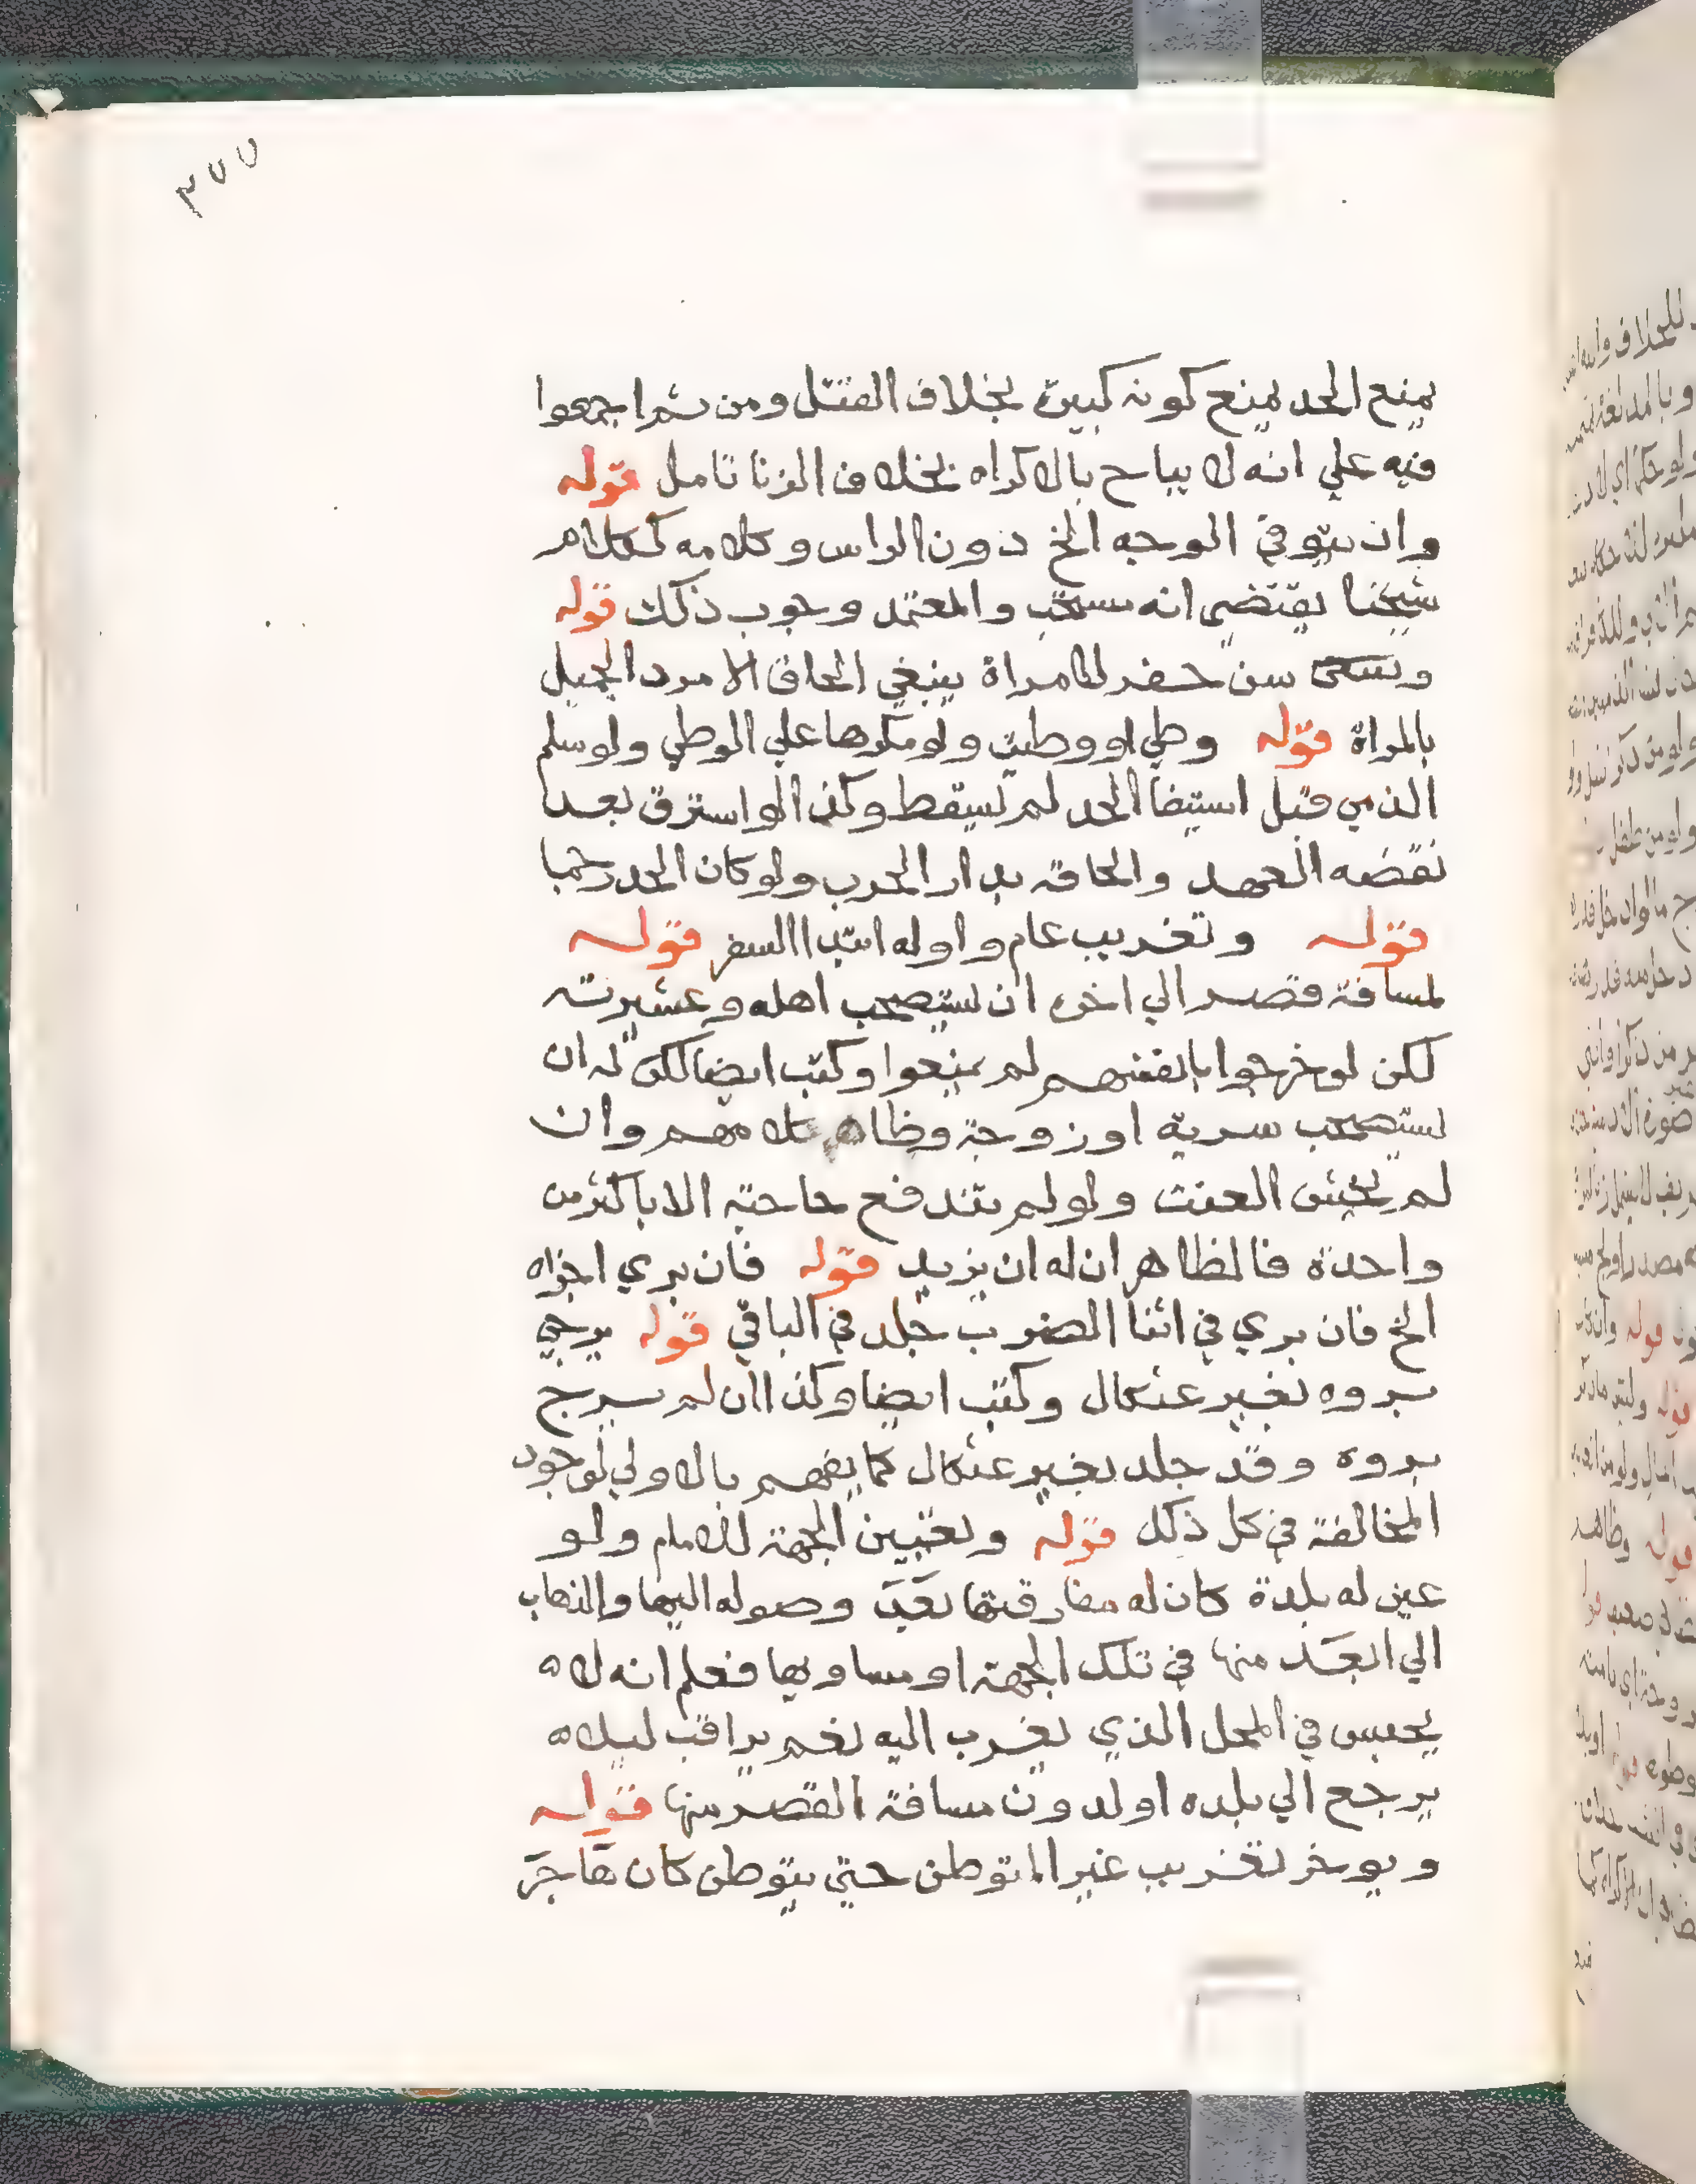 ٣٥٥
يمنع الحد يمنع كونه كبيرة بخلاف القتل ومن ثم اجمعوا
فيه علي انه لا يباح بالاكراه بخلاف الزنا تامل قوله
وان يتوقي الوجه الخ دون الراس وكلامه ككلام
شيخنا يقتضي انه مستحب والمعتمد وجوب ذلك قوله
سن حفر لامراة ينبغي الحاق الامرد الجميل
بالمراة قوله وطي او وطيت ولو مكرها علي الوطي ولو سلم
الذمي قبل استيفا الحد لم يسقط وكذا لو استرق بعد
نقضه العهد والحاقه بدار الحرب ولو كان الحد رجما
قوله وتغريب عام واوله ابتدا السفر قوله
لمسافة قصر الي اخره ان يستصحب اهله وعشيرته
لكن لو خرجوا بانفسهم لم يمنعوا وكتب ايضا لكن له ان
يستصحب سرية او زوجة وظاهر كلامهم وان
لم يخش العنت ولو لم تندفع حاجته الا باكثر من
واحدة فالظاهر ان له ان يزيد قوله فان بري اجزاه
الخ فان بري في اثنا الضرب جلد في الباقي قوله يرجي
بروه بغير عثكال وكتب ايضا وكذا ان لم يرج
بروه وقد جلد بغير عثكال كما يفهم بالاولي لوجود
المخالفة في كل ذلك قوله وتعيين الجهة للامام ولو
عين له بلدة كان له مفارقتها بعد وصوله اليها والذهاب
الي ابعد منها في تلك الجهة او مساويها فعلم انه لا
يحبس في المحل الذي يغرب اليه نعم يراقب ليلا
يرجع الي بلده او لدون مسافة القصر منها قوله
ويوخر تغريب غير المتوطن حتي يتوطن كان هاجر